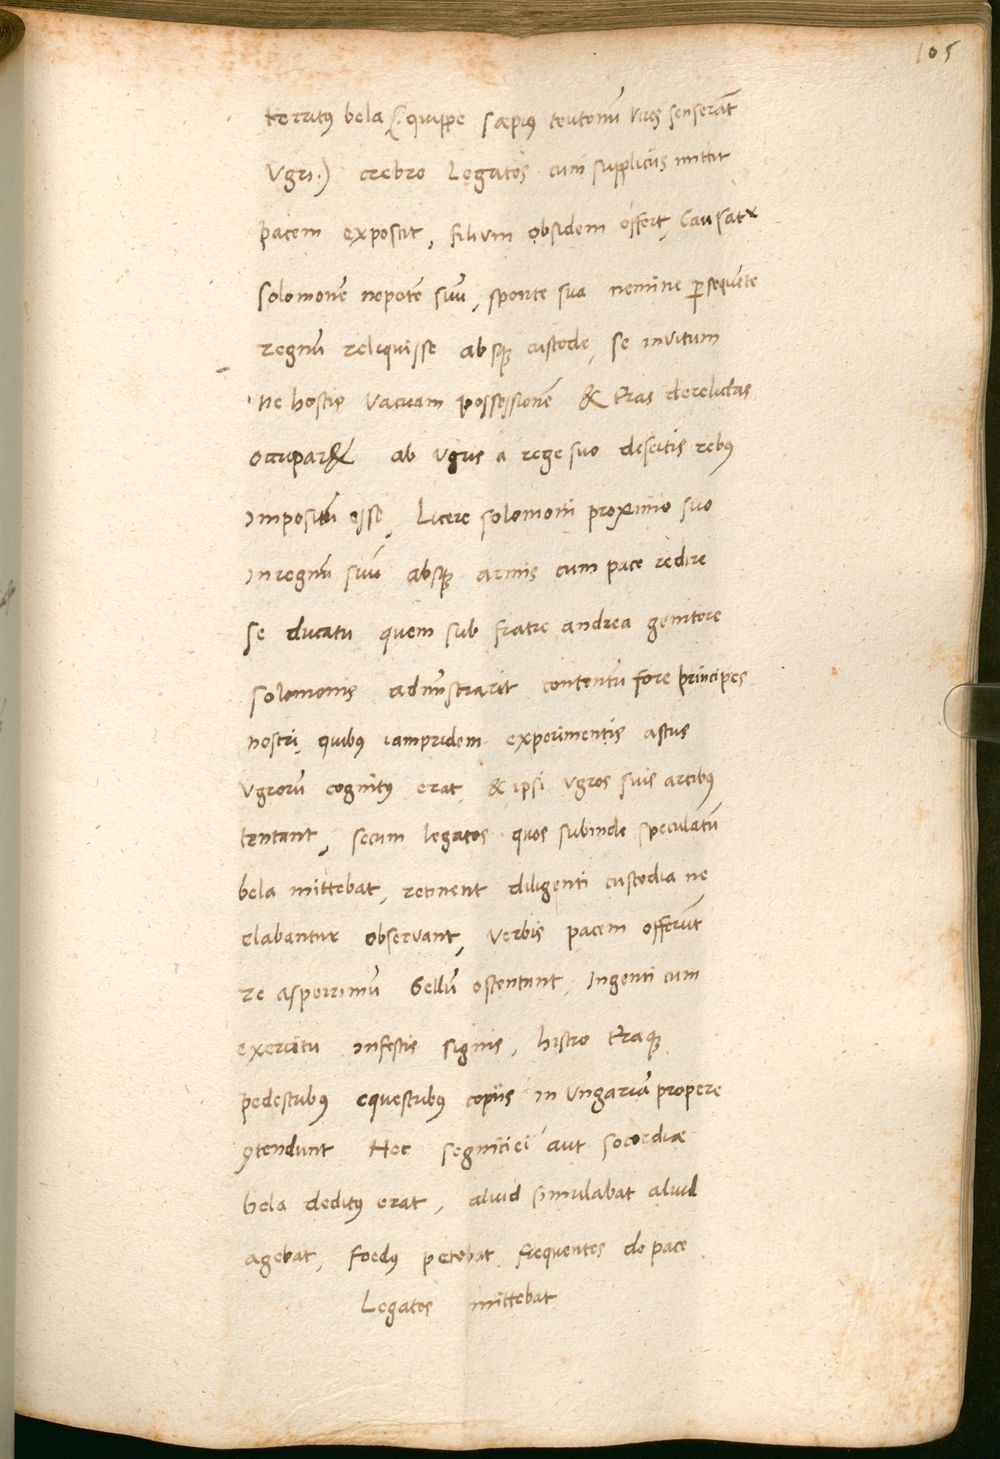 105
territꝰ bela (: quippe sæpiꝰ teutonū vires senserāt
Vgri.) crebro Legatos cum suppliciis mittit
pacem exposcit, filium obsidem offert, Causatʳ
solomonē nepotē suū, sponte sua nemine ꝑsequēte
regnū reliquisse absqꝫ custode, se invitum
ne hostis vacuam possessionē & t̄ras derelictas
occuparet ab vgris a rege suo desertis rebꝰ
impositū esse, Licere solomoni proximo suo
in regnū suū absqꝫ armis cum pace redire
se ducatu quem sub fratre andrea genitore
solomonis admīstrarit contentū fore principes
nostri, quibꝰ iampridem experimentis astus
vgrorū cognitꝰ erat, & ipsi vgros suis artibꝰ
tentant, secum legatos quos subinde speculatū
bela mittebat, retinent diligenti custodia ne
elabantur observant, verbis pacem offerūt
re asperrimū bellū ostentant, Ingenti cum
exercitu infestis signis, histro t̄raqꝫ
pedestribꝰ equestribꝰ copiis in Vngariā propere
ꝯtendunt Nec segniciei aut socordiæ
bela deditꝰ erat, aliud simulabat aliud
agebat, foedꝰ petebat, frequentes de pace
Legatos mittebat